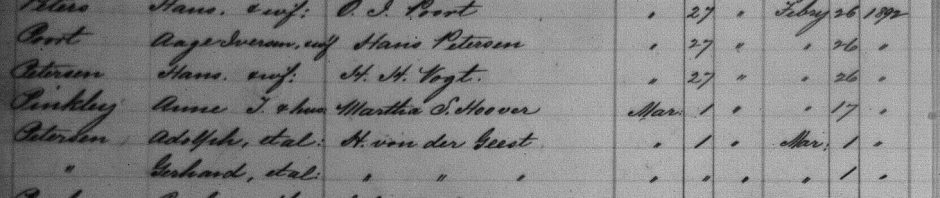 Peters Hans. & wf: O. I. Poort " 27 " Febry 26 1892
Poort Aage Iversen, wf Hans Petersen " 27 " " 26 "
Petersen Hans. & wf: H. H. Vogt. " 27 " " 26 "
Pinkley Anne J. & hus Martha S. Hoover Mar: 1 " " 17 "
Petersen Adolph, et al: H. von der Geest " 1 " Mar: 1 "
" Gerhard, et al: " " " " " " " 1 "